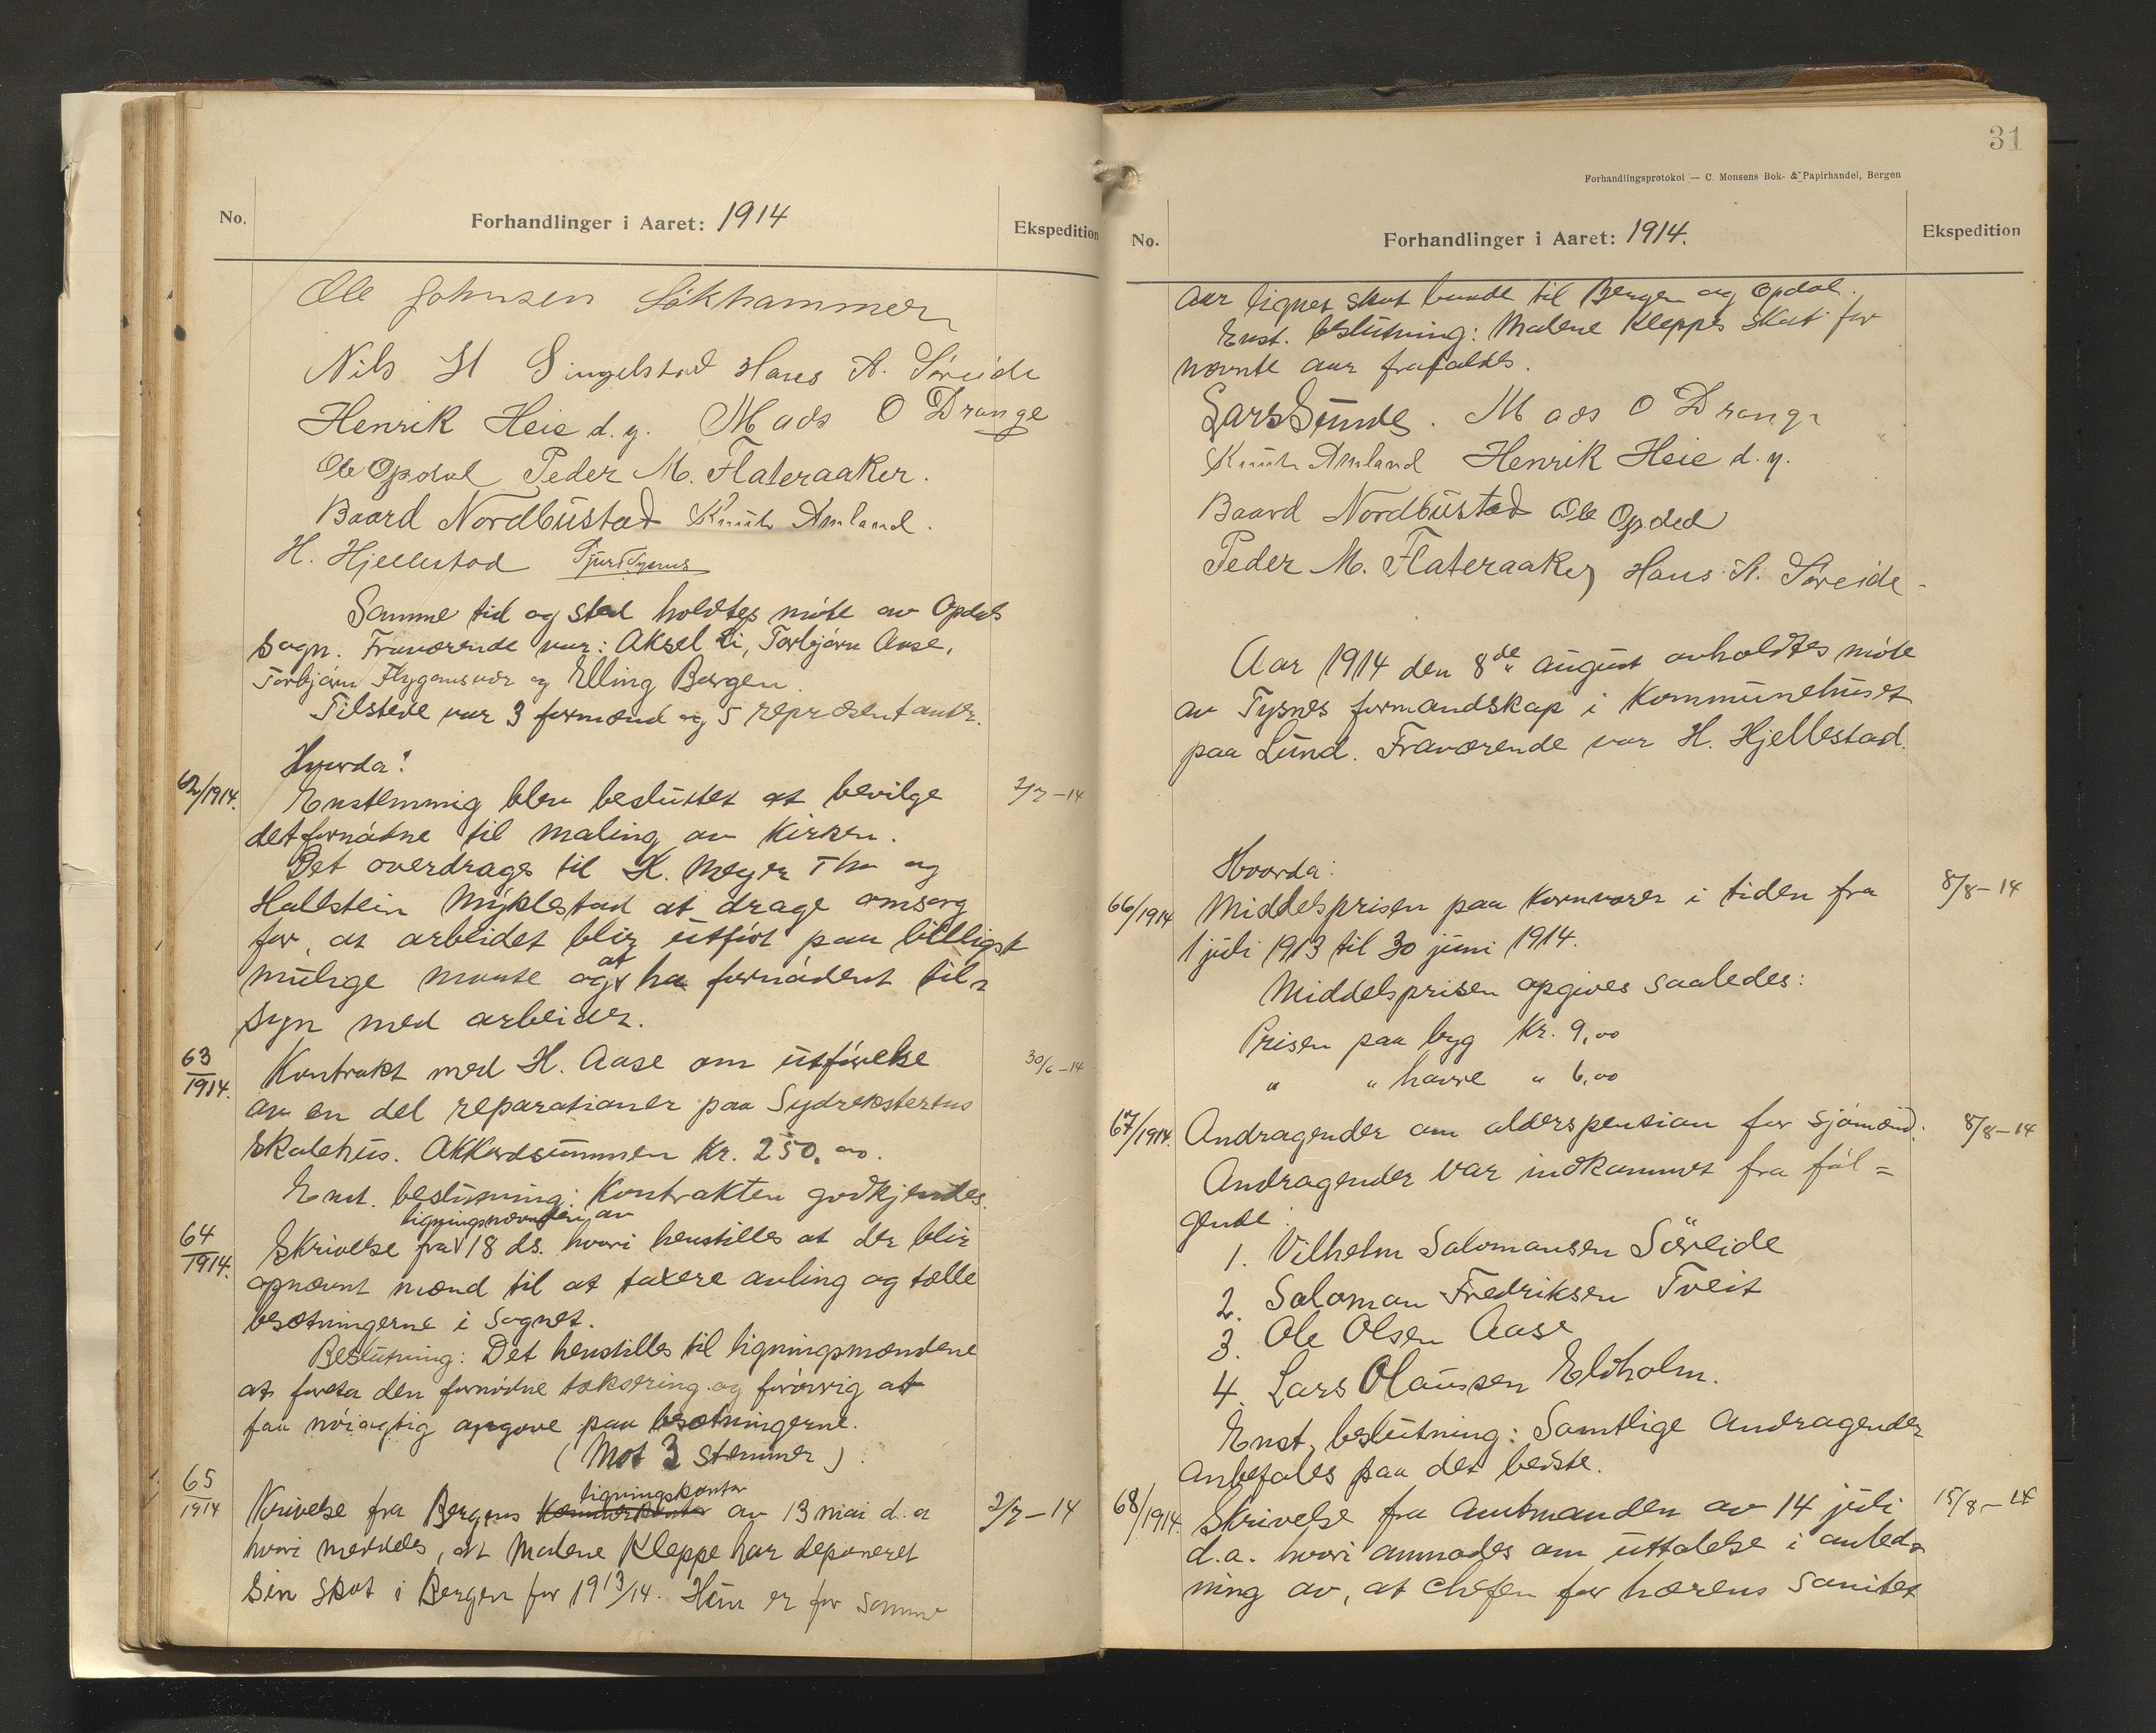 No.
Forhandlinger i Aaret: 1914
Ekspedition
Ole Johnsen Løkhammer
Nils H Singelstad Hans A. Søreide
Henrik Heie d. y. Mads O Drange
Ole Opdal Peder M. Flateraaker.
Baard Nordbustad Knut Amland.
H. Hjellestad
Samme tid og sted holdtes møte av Opdals
sogn. Fraværende var: Aksel Li, Torbjørn Aase,
Torbjørn Flygansvær og Elling Bergen.
Tilstede var 3 formænd og 5 repræsentanter.
Hvorda:
62/1914.
Enstemmig blev besluttet at bevilge
2/7-14
det fornødne til maling av kirken.
Det overdrages til H. Meyer Thu og
Hallstein Myklestad at drage omsorg
for, at arbeidet blir utført paa billigst
mulige maate og at ha fornødent til-
syn med arbeidet.
63/1914.
Kontrakt med H. Aase om utførelse
30/6-14
av en del reparationer paa Sydrekstertus
skolehus. Akkordsummen kr. 250.00.
Enst. beslutning: Kontrakten godkjendes.
64/1914.
Skrivelse fra ligningsnævnden av 18 ds. hvori henstilles at der blir
opnævnt mænd til at taxere avling og tælle
besætningerne i sognet.
Beslutning: Det henstilles til ligningsmændene
at foreta den fornødne taksering og forøvrig at
faa nøiagtig opgave paa besætningerne.
(Mot 3 stemmer).
65/1914
Skrivelse fra Bergens kæmnerkontor ligningskontor av 13 mai d.a
2/7-14
hvori meddeles, at Malene Kleppe har deponeret
sin skat i Bergen for 1913/14. Hun er for samme
31
Forhandlingsprotokol — C. Monsens Bok- & Papirhandel, Bergen
No.
Forhandlinger i Aaret: 1914.
Ekspedition
aar lignet skat baade til Bergen og Opdal.
Enst. beslutning: Malene Kleppes skat for
nævnte aar frafaldes.
Lars Sunde. Mads O Drange
Knut Amland Henrik Heie d. y.
Baard Nordbustad Ole Opdal
Peder M. Flateraaker Hans A. Søreide
Aar 1914 den 8de august avholdtes møte
av Tysnes formandskap i kommunehuset
paa Lund. Fraværende var H. Hjellestad.
Hvorda:
66/1914
Middelsprisen paa kornvarer i tiden fra
8/8-14
1 juli 1913 til 30 juni 1914.
Middelsprisen opgives saaledes:
Prisen paa byg kr. 9,00
" " havre " 6,00
67/1914.
Andragender om alderspension for sjømænd.
8/8-14
Andragender var indkommet fra føl=
gende:
1. Vilhelm Salomonsen Søreide
2. Salomon Fredriksen Tveit
3. Ole Olsen Aase
4. Lars Olaussen Eldholm.
Enst. beslutning: Samtlige andragender
anbefales paa det bedste.
68/1914.
Skrivelse fra amtmanden av 14 juli
15/8-14
d.a. hvori anmodes om uttalelse i anled-
ning av, at chefen for hærens sanitet